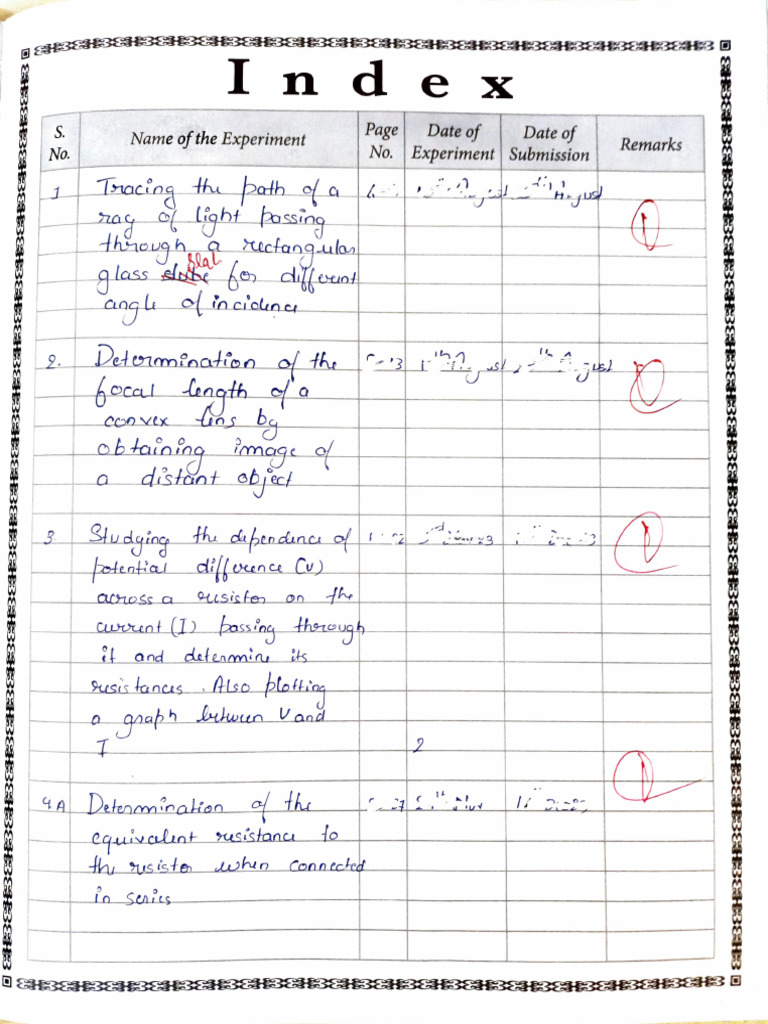 Index
S. No. Name of the Experiment Page No. Date of Experiment Date of Submission Remarks
1 Tracing the path of a August August
ray of light passing
through a rectangular
slab
glass for different
angle of incidence
2. Determination of the August August
focal length of a
convex lens by
obtaining image of
a distant object
3 Studying the dependence of
potential difference (V)
across a resistor on the
current (I) passing through
it and determine its
resistances. Also plotting
a graph between V and
I 2
4A Determination of the
equivalent resistance to
the resistor when connected
in series